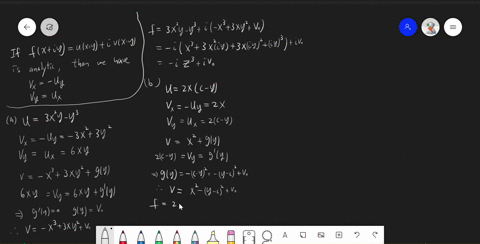 If f(x+iy)=u(x,y)+iv(x,y)
is analytic, then we have
Vx = -Uy
Vy = Ux
(a) U = 3x²y-y³
Vx = -Uy = -3x²+3y²
Vy = Ux = 6xy
V = -x³+3xy²+g(y)
6xy = Vy = 6xy + g'(y)
⇒ g'(y)=0 g(y) = V₀
∴ V = -x³+3xy²+V₀
f = 3x²y-y³ + i(-x³+3xy²+V₀)
= -i(x³+3x²iy+3x(iy)²+(iy)³)+iV₀
= -i z³+iV₀
(b) U = 2x(c-y)
Vx = -Uy = 2x
Vy = Ux = 2(c-y)
V = x² + g(y)
2(c-y) = Vy = g'(y)
⇒ g(y) = -(c-y)² = -(y-c)²+V₀
∴ V = x²-(y-c)²+V₀
f = 2